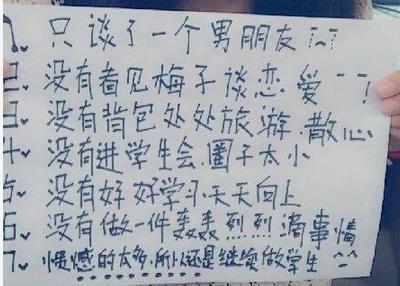 1、只谈了一个男朋友!~!
2、没有看见梅子谈恋爱
3、没有背包处处旅游.散心
4、没有进学生会.圈子太小
5、没有好好学习.天天向上
6、没有做一件轰轰烈烈滴事情
7、憾的太多.所以还是继续做学生^^